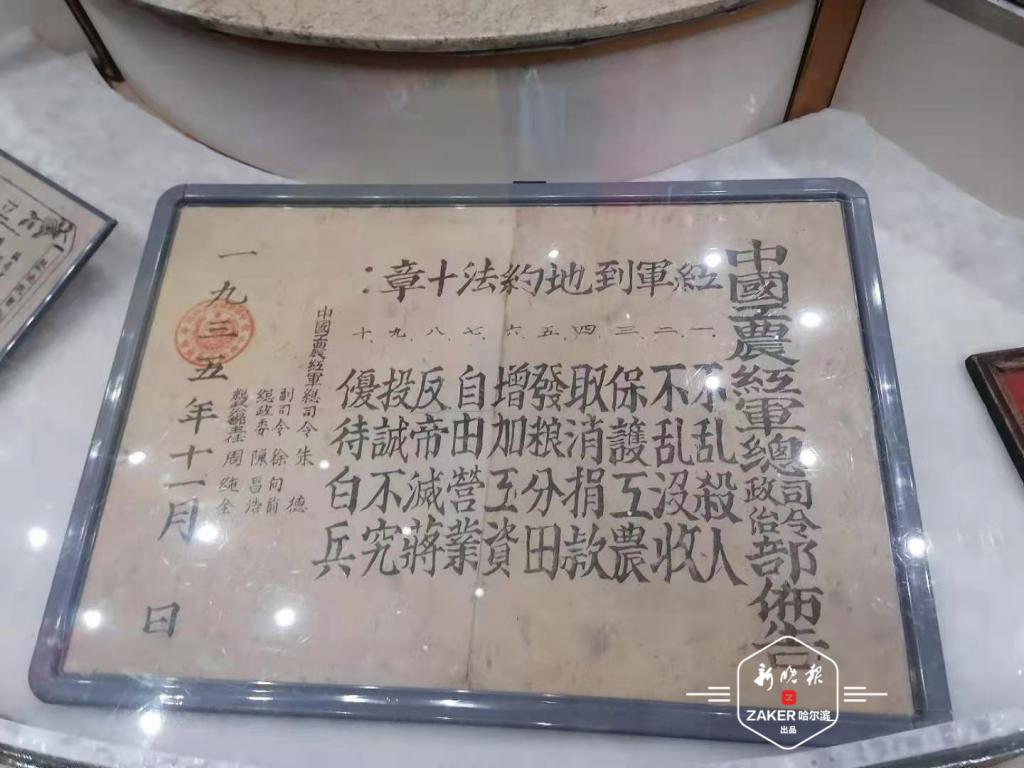 中國工農紅軍總司令政治部佈告
紅軍到地約法十章：
一、不乱殺人
二、不乱沒收
三、保護工農
四、取消捐款
五、發粮分田
六、增加工資
七、自由營業
八、反帝滅蔣
九、投誠不究
十、優待白兵
中國工農紅軍總司令 朱德
副司令 徐向前
總政委 陳昌浩
周純全
一九三五年十一月 日
新晚报
ZAKER 哈尔滨
出品